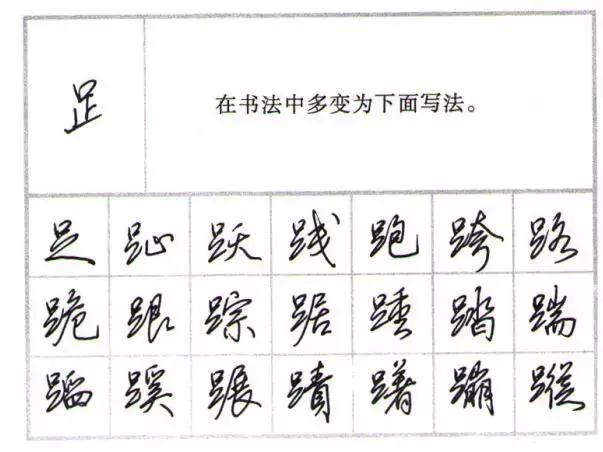 足 在书法中多变为下面写法。
足 趾 跃 践 跑 跨 路
跪 跟 踪 踞 踵 踏 踹
蹓 蹊 蹍 躇 蹦